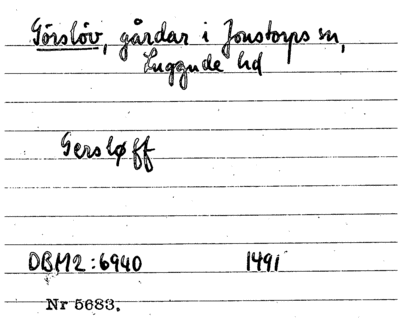 Görslöv, gårdar i Jonstorps sn,
Luggude hd
Gersløff
DBM2:6940 1491
Nr 5683.